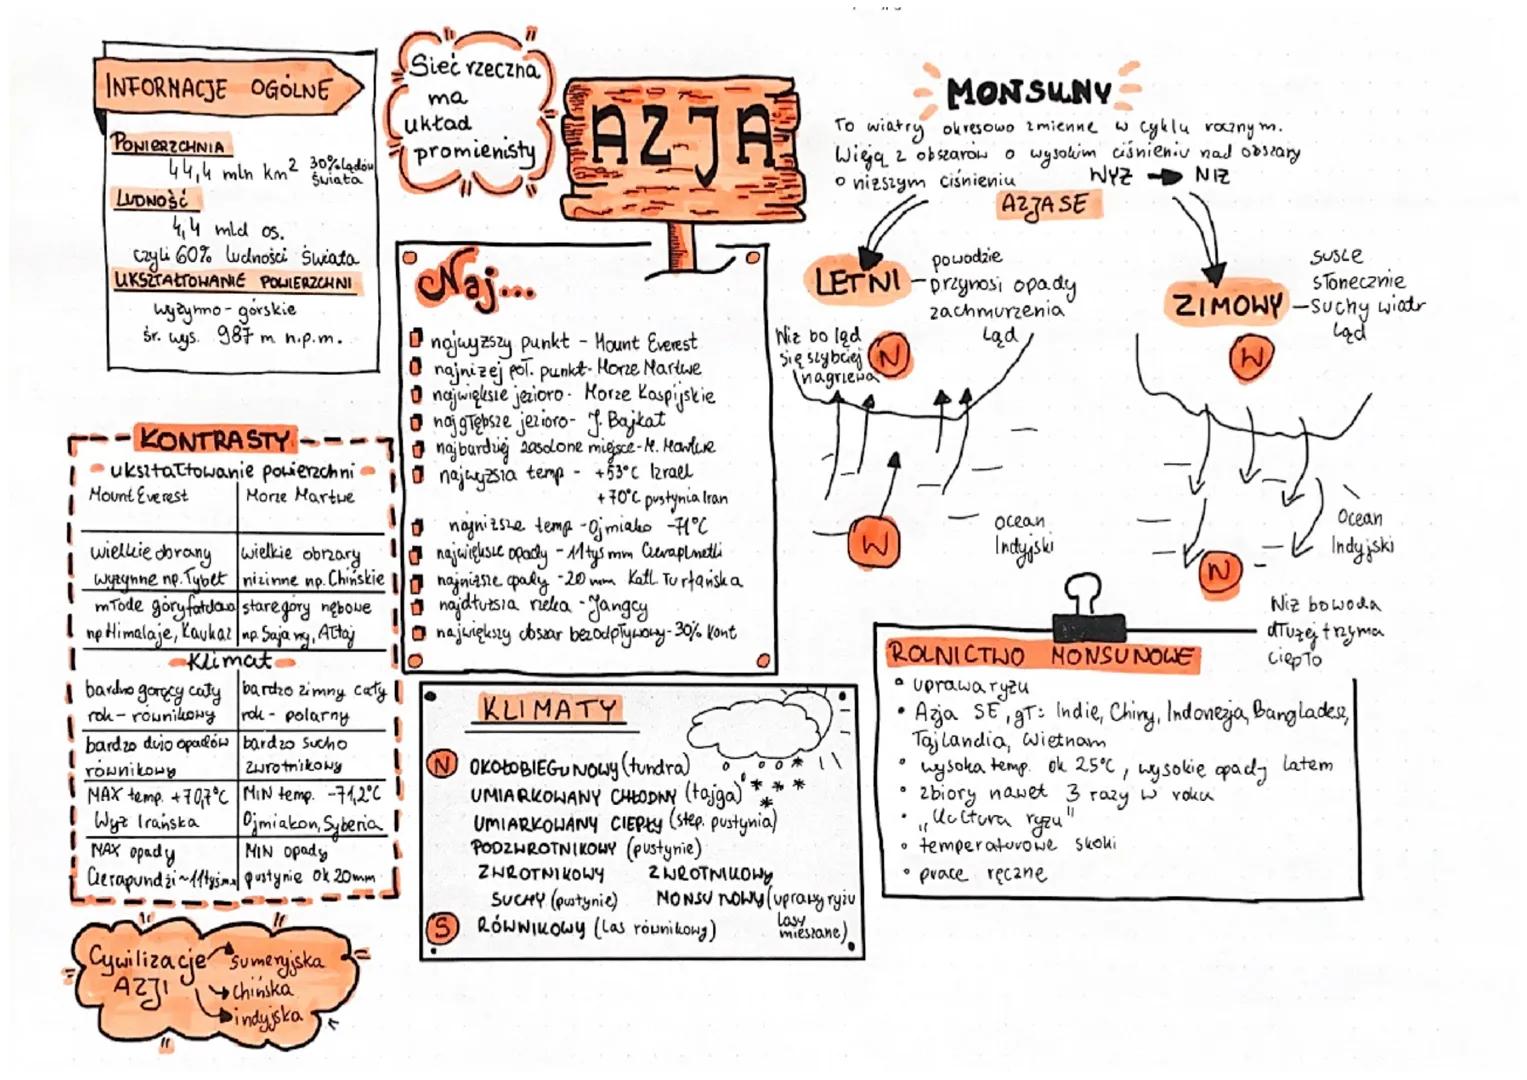 INFORMACJE OGÓLNE
POWIERZCHNIA
44,4 mln km² 30% lądów świata
LUDNOŚĆ
4,4 mld os.
czyli 60% ludności świata
UKSZTAŁTOWANIE POWIERZCHNI
wyżynno-górskie
śr. wys. 987 m n.p.m.
Sieć rzeczna
ma
układ
promienisty
AZJA
Naj...
najwyższy punkt - Mount Everest
najniżej poł. punkt - Morze Martwe
największe jezioro - Morze Kaspijskie
najgłębsze jezioro - J. Bajkał
najbardziej zasolone miejsce - M. Martwe
najwyższa temp - +53°C Izrael
+70°C pustynia Iran
najniższe temp - Ojmiako -71°C
największe opady - 11 tys mm
najniższe opady - 20 mm Katl. Turfańska
najdłuższa rzeka - Jangcy
największy obszar bezodpływowy - 30% kont
MONSUNY
To wiatry okresowo zmienne w cyklu rocznym.
Wieją z obszarów o wysokim ciśnieniu nad obszary
o niższym ciśnieniu WYŻ → NIŻ
AZJA SE
LETNI
powodzie
- przynosi opady
zachmurzenia
ląd
Niż bo ląd
się szybciej
nagrzewa
N
W
ocean
Indyjski
ZIMOWY
susze
słonecznie
- suchy wiatr
ląd
W
N
Ocean
Indyjski
Niż bo woda
dłużej trzyma
ciepło
KONTRASTY
ukształtowanie powierzchni
Mount Everest | Morze Martwe
wielkie obrany | wielkie obrzary
wyżynne np. Tybet | nizinne np. Chińskie
młode góry fałdowe | stare góry zrębowe
np Himalaje, Kaukaz | np. Sajany, Ałtaj
Klimat
bardzo gorący cały | bardzo zimny cały
rok - równikowy | rok - polarny
bardzo dużo opadów | bardzo sucho
równikowy | zwrotnikowy
MAX temp. +70,7°C | MIN temp. -71,2°C
Wyż Irańska | Ojmiakon, Syberia
MAX opady | MIN opady
Czerapundżi ~11tys mm | pustynie ok 20mm
KLIMATY
N OKOŁOBIEGUNOWY (tundra)
UMIARKOWANY CHŁODNY (tajga)
UMIARKOWANY CIEPŁY (step, pustynia)
PODZWROTNIKOWY (pustynie)
ZWROTNIKOWY ZWROTNIKOWY
SUCHY (pustynie) MONSUNOWY (uprawy ryżu
lasy
mieszane)
S RÓWNIKOWY (las równikowy)
ROLNICTWO MONSUNOWE
uprawa ryżu
Azja SE, gł: Indie, Chiny, Indonezja, Bangladesz,
Tajlandia, Wietnam
wysoka temp. ok 25°C, wysokie opady latem
zbiory nawet 3 razy w roku
"Kultura ryżu"
temperaturowe skoki
prace ręczne
Cywilizacje
AZJI
sumeryjska
chińska
indyjska